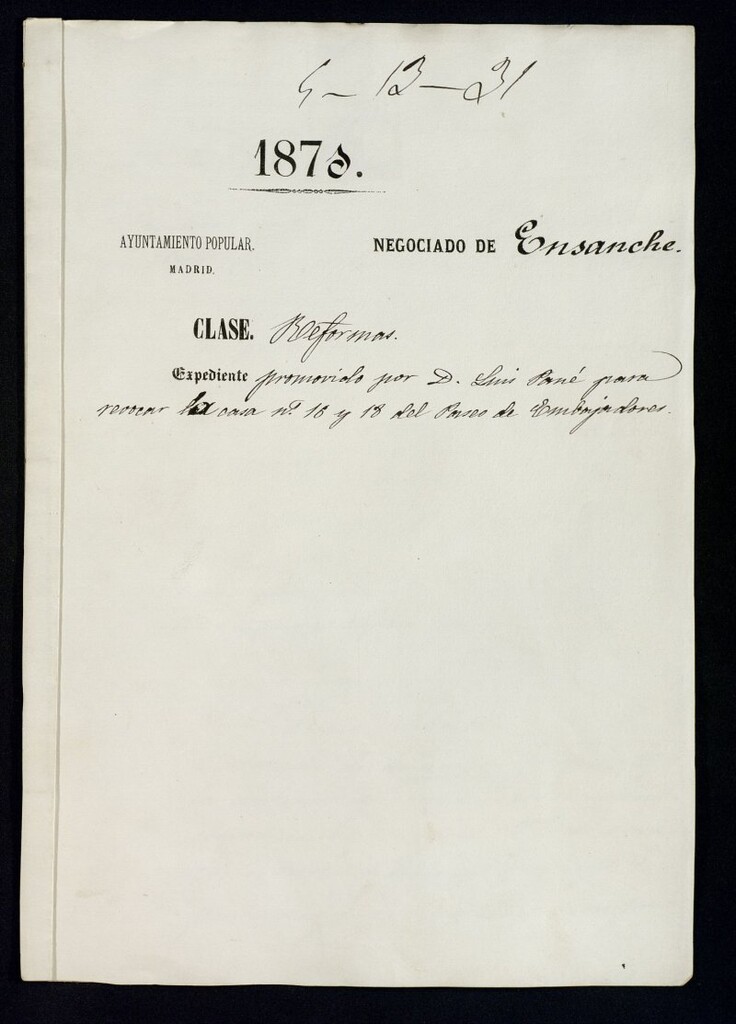 5-13-31
1875.
AYUNTAMIENTO POPULAR. NEGOCIADO DE Ensanche.
MADRID.
CLASE. Reformas.
Expediente promovido por D. Luis Pané para
revocar la casa nº. 16 y 18 del Paseo de Embajadores.